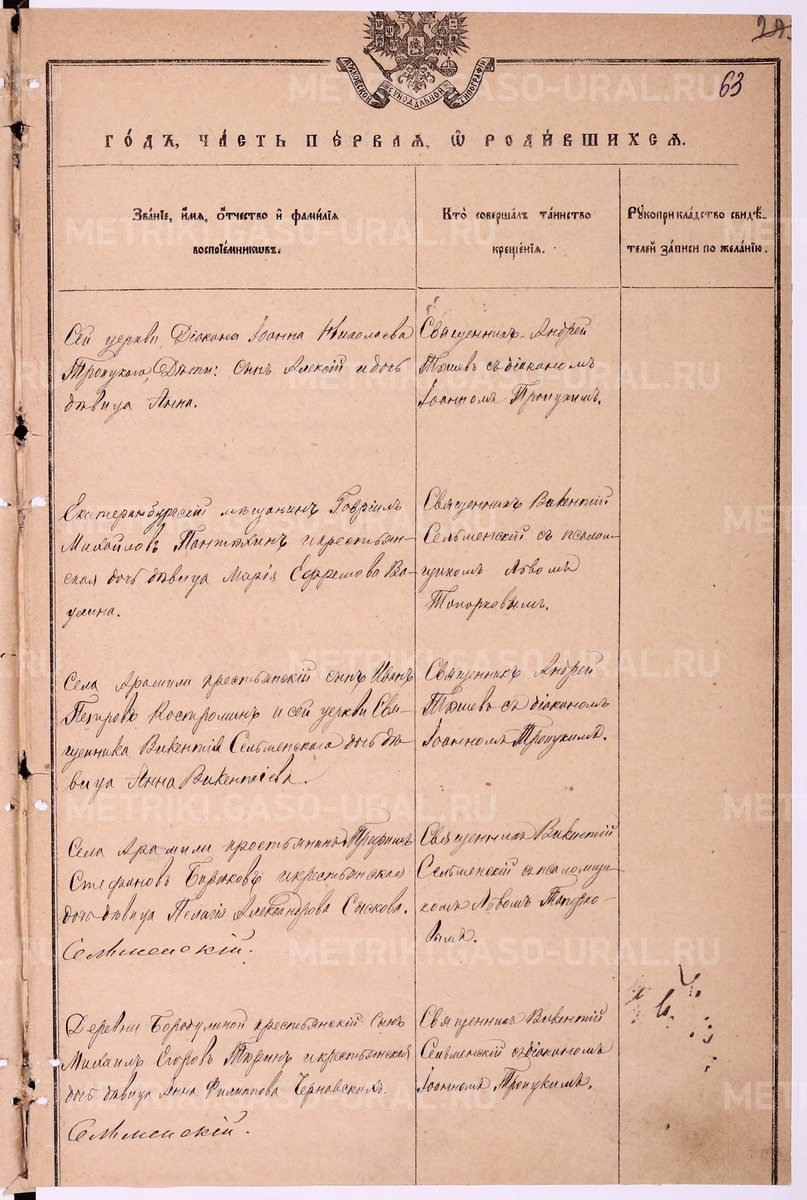 63
МОСКОВСКОЙ СѴНОДАЛЬНОЙ ТИПОГРАФІИ
ГО́ДЪ, ЧА́СТЬ ПЕ́РВАЯ, Ѽ РОДИ́ВШИХСЯ.
Зва́нїе, и҆́мя, ѻ҆́тчество и҆ фами́лїя
воспрїе́мникѡвъ.
Кто̀ соверша́лъ та́инство
креще́нїя.
Рꙋкоприкла́дство свидѣ́-
телей за́писи по жела́нїю.
Сей церкви, Діакона Іоанна Николаева
Троицкаго, Дѣти: сынъ Алексій и дочь
дѣвица Анна.
Священникъ Андрей
съ діакономъ
Іоанномъ Троицкимъ.
Екатеринбургскій мѣщанинъ Гавріилъ
Михайловъ Пантюхинъ и крестьян-
ская дочь дѣвица Марія Ефремова Ва-
улина.
Священникъ Викентій
Сельменскій съ псалом-
щикомъ Львомъ
Топорковымъ.
Села Арамили крестьянскій сынъ Иванъ
Петровъ Костроминъ и сей церкви Свя-
щенника Викентія Сельменскаго дочь дѣ-
вица Анна Викентіева.
Священникъ Андрей
съ діакономъ
Іоанномъ Троицкимъ.
Села Арамили крестьянинъ Трофимъ
Стефановъ и крестьянская
дочь дѣвица Пелагія Александрова Сыскова.
Сельменскій.
Священникъ Викентій
Сельменскій съ псаломщи-
комъ Львомъ Топорко-
вымъ.
Деревни Бородулиной крестьянскій сынъ
Михаилъ Егоровъ Тюринъ и крестьянская
дочь дѣвица Анна Филиппова Черновскихъ.
Сельменскій.
Священникъ Викентій
Сельменскій съ діакономъ
Іоанномъ Троицкимъ.
METRIKI.GASO-URAL.RU